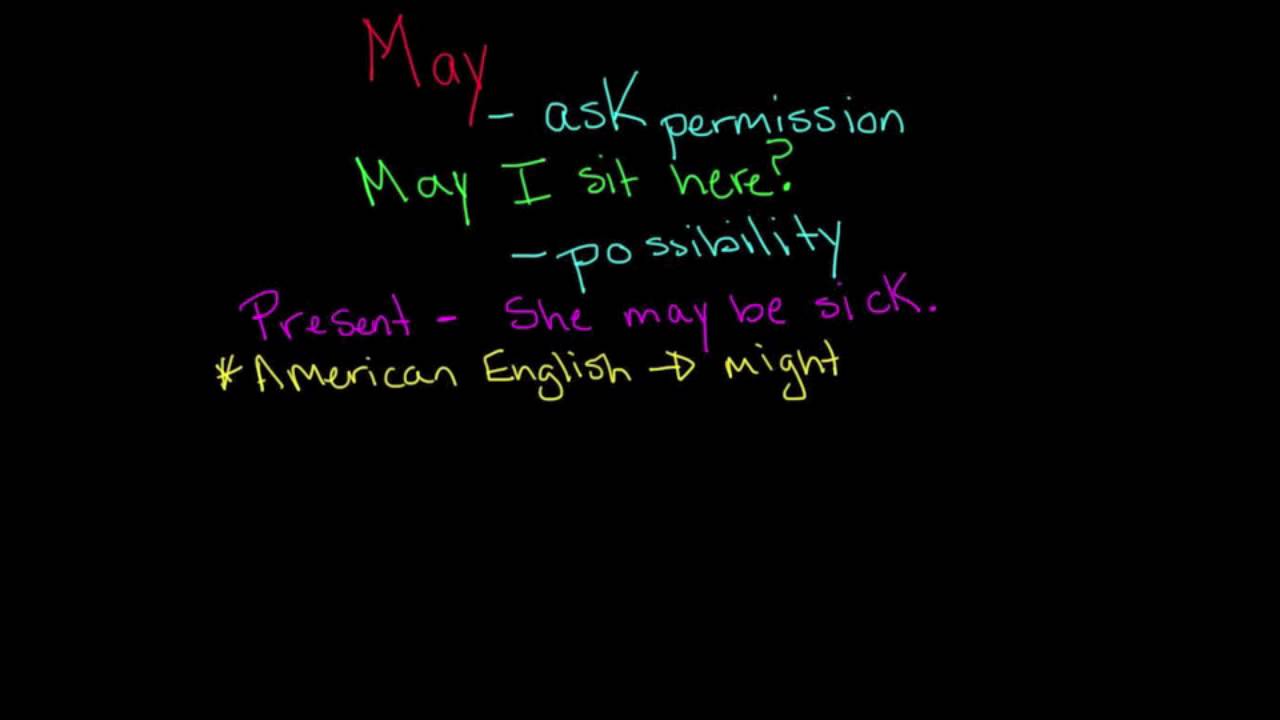 May
- ask permission
May I sit here?
- possibility
Present - She may be sick.
* American English → might